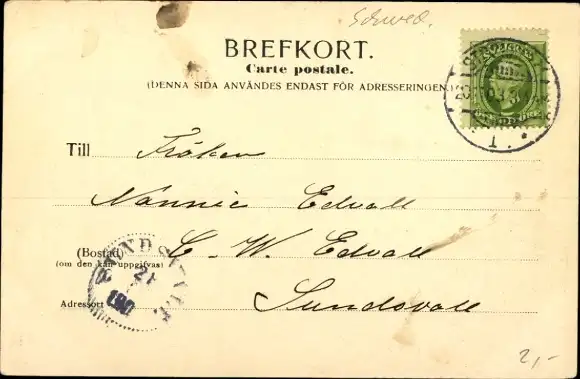 Schwed.
BREFKORT.
Carte postale.
(DENNA SIDA ANVÄNDES ENDAST FÖR ADRESSERINGEN.)
Till Fröken
Nannie Edvall
(Bostad) C. W. Edvall
(om den kan uppgifvas)
Adressort Sundsvall
SUNDSVALL
21
2,-